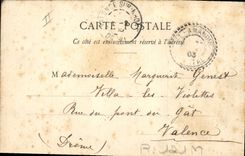 II
CARTE POSTALE
Ce côté est exclusivement réservé à l'adresse
03
Mademoiselle Marguerite Genest
Villa les Violettes
Rue du pont du Gât
Valence
(Drôme)